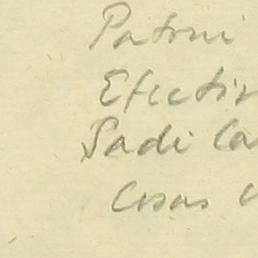 Patoni
Efectiv
Sadi Ca
Cosas